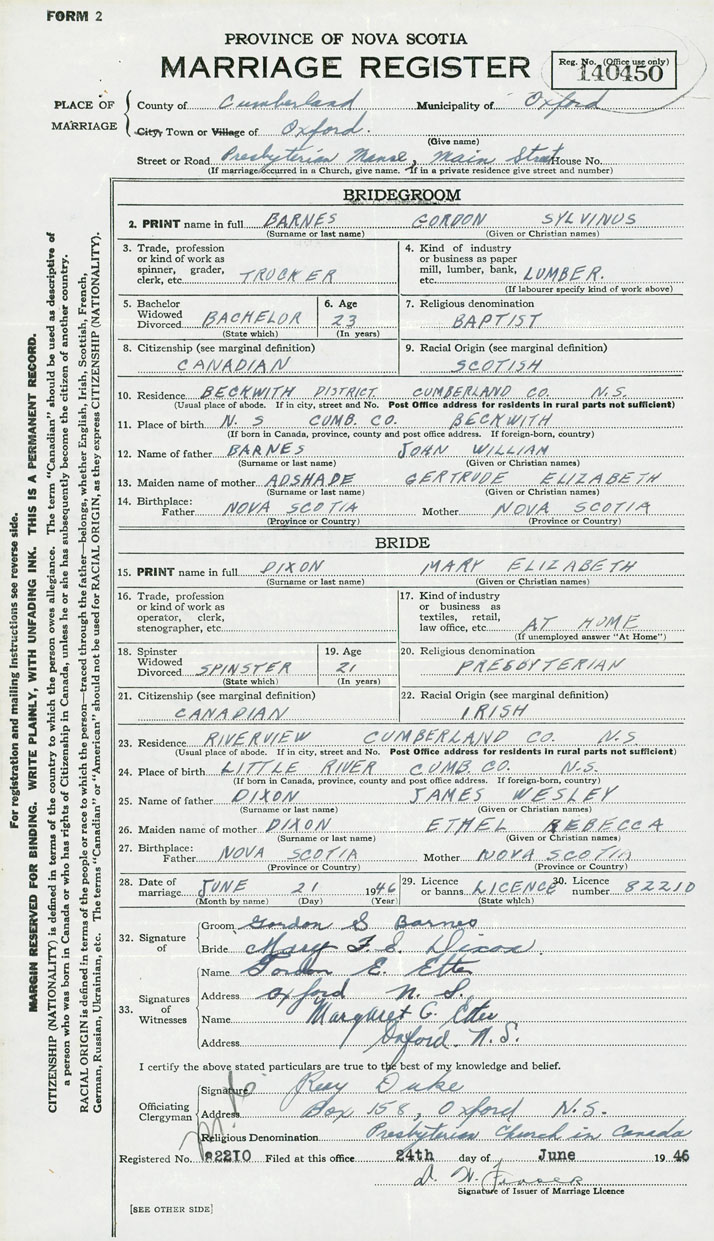 FORM 2
PROVINCE OF NOVA SCOTIA
MARRIAGE REGISTER
Reg. No. (Office use only)
140450
PLACE OF MARRIAGE
County of Cumberland Municipality of Oxford
City, Town or Village of Oxford.
(Give name)
Street or Road Presbyterian Manse, Main Street House No.
(If marriage occurred in a Church, give name. If in a private residence give street and number)
BRIDEGROOM
2. PRINT name in full BARNES GORDON SYLVINUS
(Surname or last name) (Given or Christian names)
3. Trade, profession or kind of work as spinner, grader, clerk, etc. TRUCKER
4. Kind of industry or business as paper mill, lumber, bank, etc. LUMBER.
(If labourer specify kind of work above)
5. Bachelor Widowed Divorced BACHELOR
(State which)
6. Age 23
(In years)
7. Religious denomination
BAPTIST
8. Citizenship (see marginal definition)
CANADIAN
9. Racial Origin (see marginal definition)
SCOTISH
10. Residence BECKWITH DISTRICT CUMBERLAND CO. N.S.
(Usual place of abode. If in city, street and No. Post Office address for residents in rural parts not sufficient)
11. Place of birth N. S CUMB. CO. BECKWITH
(If born in Canada, province, county and post office address. If foreign-born, country)
12. Name of father BARNES JOHN WILLIAM
(Surname or last name) (Given or Christian names)
13. Maiden name of mother ADSHADE GERTRUDE ELIZABETH
(Surname or last name) (Given or Christian names)
14. Birthplace:
Father NOVA SCOTIA Mother NOVA SCOTIA
(Province or Country) (Province or Country)
BRIDE
15. PRINT name in full DIXON MARY ELIZABETH
(Surname or last name) (Given or Christian names)
16. Trade, profession or kind of work as operator, clerk, stenographer, etc.
17. Kind of industry or business as textiles, retail, law office, etc. AT HOME
(If unemployed answer "At Home")
18. Spinster Widowed Divorced SPINSTER
(State which)
19. Age 21
(In years)
20. Religious denomination
PRESBYTERIAN
21. Citizenship (see marginal definition)
CANADIAN
22. Racial Origin (see marginal definition)
IRISH
23. Residence RIVERVIEW CUMBERLAND CO. N.S
(Usual place of abode. If in city, street and No. Post Office address for residents in rural parts not sufficient)
24. Place of birth LITTLE RIVER CUMB. CO. N.S.
(If born in Canada, province, county and post office address. If foreign-born, country)
25. Name of father DIXON JAMES WESLEY
(Surname or last name) (Given or Christian names)
26. Maiden name of mother DIXON ETHEL REBECCA
(Surname or last name) (Given or Christian names)
27. Birthplace:
Father NOVA SCOTIA Mother NOVA SCOTIA
(Province or Country) (Province or Country)
28. Date of marriage JUNE 21 1946
(Month by name) (Day) (Year)
29. Licence or banns LICENCE
(State which)
30. Licence number 82210
32. Signature of
Groom Gordon S Barnes
Bride Mary E. Dixon
33. Signatures of Witnesses
Name Gordon E. Etter
Address Oxford N. S.
Name Margaret G. Etter
Address Oxford. N.S.
I certify the above stated particulars are true to the best of my knowledge and belief.
Officiating Clergyman
Signature Ray Duke
Address Box 158, Oxford N.S.
Religious Denomination Presbyterian Church in Canada
Registered No. 82210 Filed at this office 24th day of June 1946
D. W. Fraser
Signature of Issuer of Marriage Licence
[SEE OTHER SIDE]
For registration and mailing instructions see reverse side.
MARGIN RESERVED FOR BINDING. WRITE PLAINLY, WITH UNFADING INK. THIS IS A PERMANENT RECORD.
CITIZENSHIP (NATIONALITY) is defined in terms of the country to which the person owes allegiance. The term "Canadian" should be used as descriptive of
a person who was born in Canada or who has rights of Citizenship in Canada, unless he or she has subsequently become the citizen of another country.
RACIAL ORIGIN is defined in terms of the people or race to which the person—traced through the father—belongs, whether English, Irish, Scottish, French,
German, Russian, Ukrainian, etc. The terms "Canadian" or "American" should not be used for RACIAL ORIGIN, as they express CITIZENSHIP (NATIONALITY).